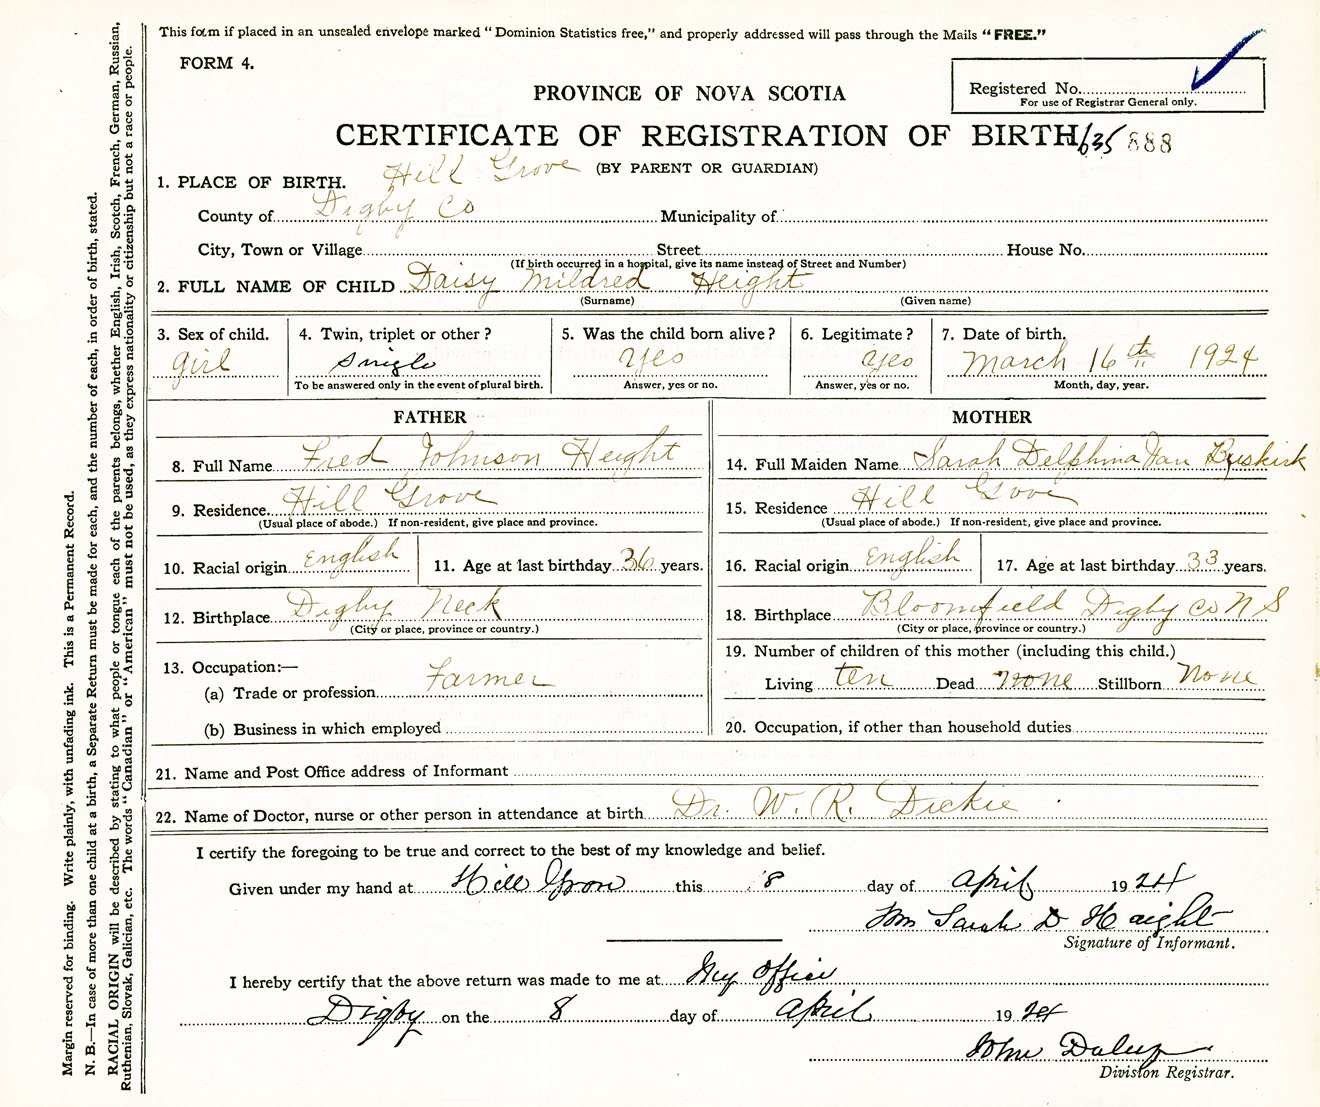 This form if placed in an unsealed envelope marked "Dominion Statistics free," and properly addressed will pass through the Mails "FREE."
FORM 4.
Registered No.
For use of Registrar General only.
PROVINCE OF NOVA SCOTIA
CERTIFICATE OF REGISTRATION OF BIRTH 635 888
(BY PARENT OR GUARDIAN)
1. PLACE OF BIRTH. Hill Grove
County of Digby Co Municipality of
City, Town or Village Street House No.
(If birth occurred in a hospital, give its name instead of Street and Number)
2. FULL NAME OF CHILD Daisy Mildred Height
(Surname) (Given name)
3. Sex of child. 4. Twin, triplet or other? 5. Was the child born alive? 6. Legitimate? 7. Date of birth.
girl single yes yes March 16th 1924
To be answered only in the event of plural birth. Answer, yes or no. Answer, yes or no. Month, day, year.
FATHER
8. Full Name Fred Johnson Height
9. Residence Hill Grove
(Usual place of abode.) If non-resident, give place and province.
10. Racial origin English 11. Age at last birthday 36 years.
12. Birthplace Digby Neck
(City or place, province or country.)
13. Occupation:—
(a) Trade or profession Farmer
(b) Business in which employed
MOTHER
14. Full Maiden Name Sarah Delphina Van Buskirk
15. Residence Hill Grove
(Usual place of abode.) If non-resident, give place and province.
16. Racial origin English 17. Age at last birthday 33 years.
18. Birthplace Bloomfield Digby Co N S
(City or place, province or country.)
19. Number of children of this mother (including this child.)
Living ten Dead none Stillborn None
20. Occupation, if other than household duties
21. Name and Post Office address of Informant
22. Name of Doctor, nurse or other person in attendance at birth Dr. W. R. Dickie
I certify the foregoing to be true and correct to the best of my knowledge and belief.
Given under my hand at Hill Grove this 8 day of April 1924
Mrs Sarah D Haight
Signature of Informant.
I hereby certify that the above return was made to me at My office
Digby on the 8 day of April 1924
John
Division Registrar.
Margin reserved for binding. Write plainly, with unfading ink. This is a Permanent Record.
N. B.—In case of more than one child at a birth, a Separate Return must be made for each, and the number of each, in order of birth, stated.
RACIAL ORIGIN will be described by stating to what people or tongue each of the parents belongs, whether English, Irish, Scotch, French, German, Russian,
Ruthenian, Slovak, Galician, etc. The words "Canadian" or "American" must not be used, as they express nationality or citizenship but not a race or people.